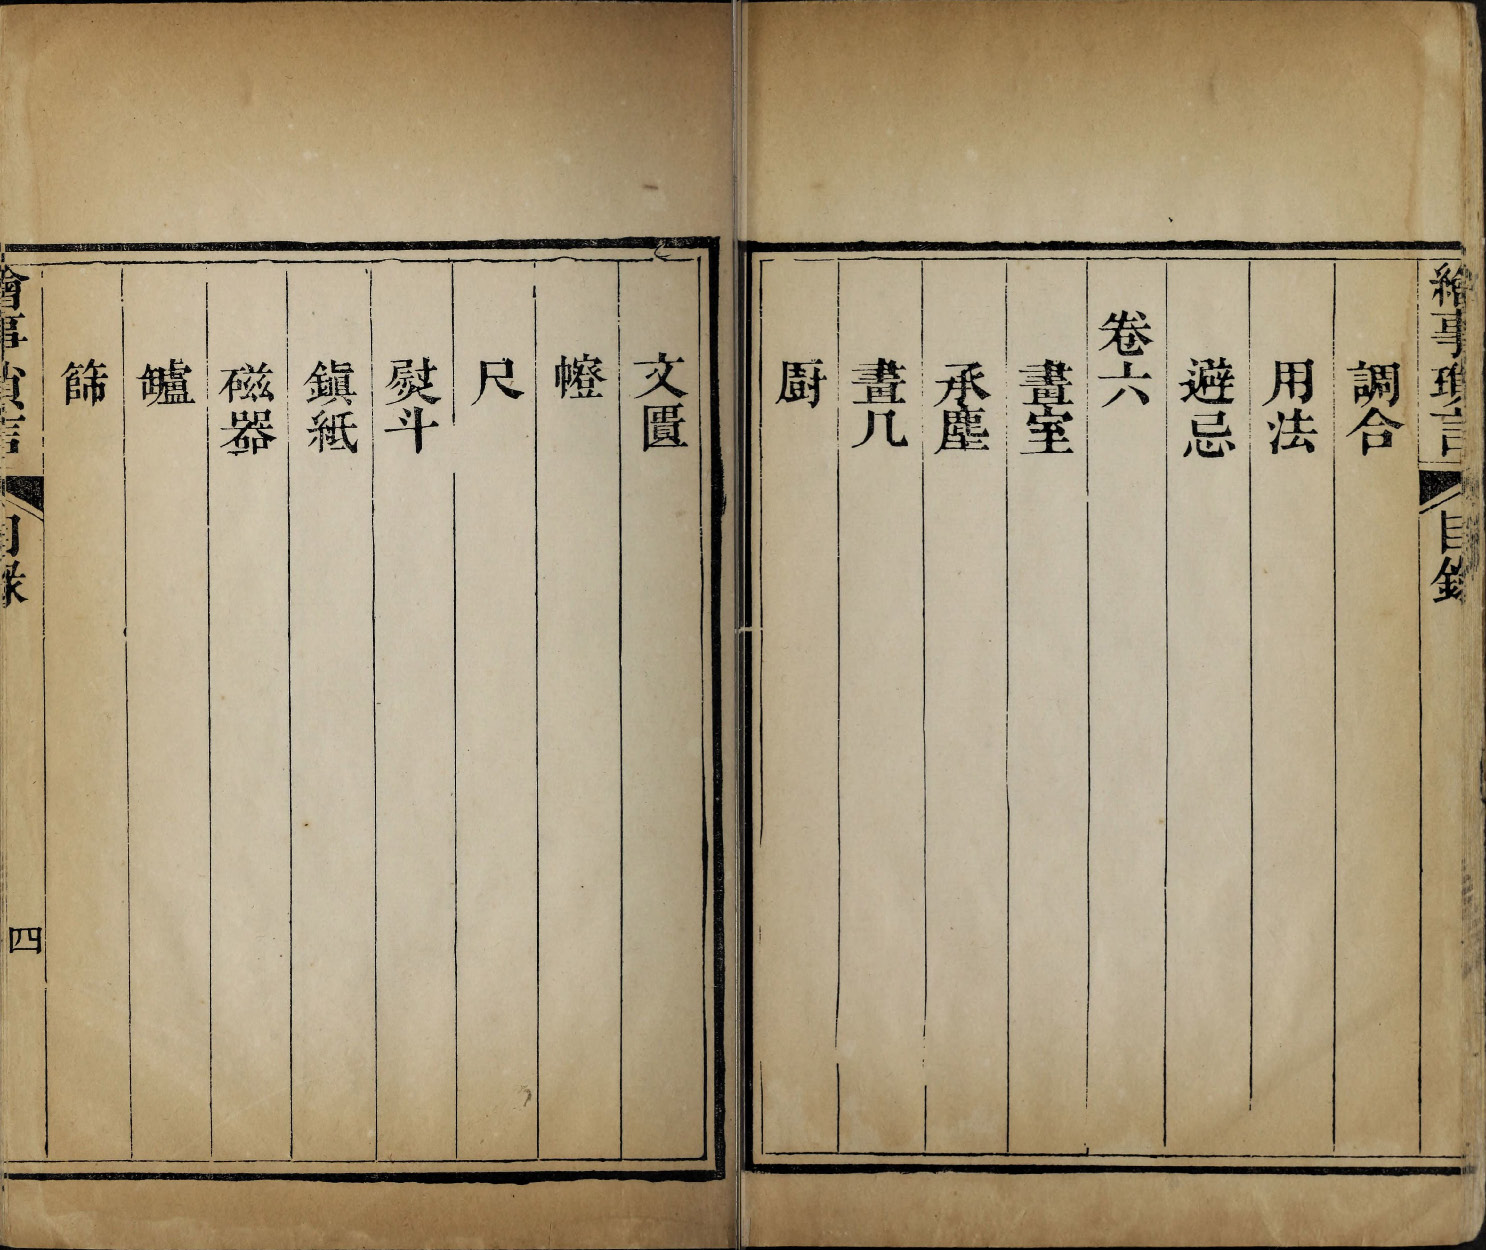 繪事瑣言 目錄
調合
用法
避忌
卷六
畫室
承塵
畫几
廚
文匱
㡧
尺
熨斗
鎭紙
磁器
罏
篩
繪事瑣言 目錄 四